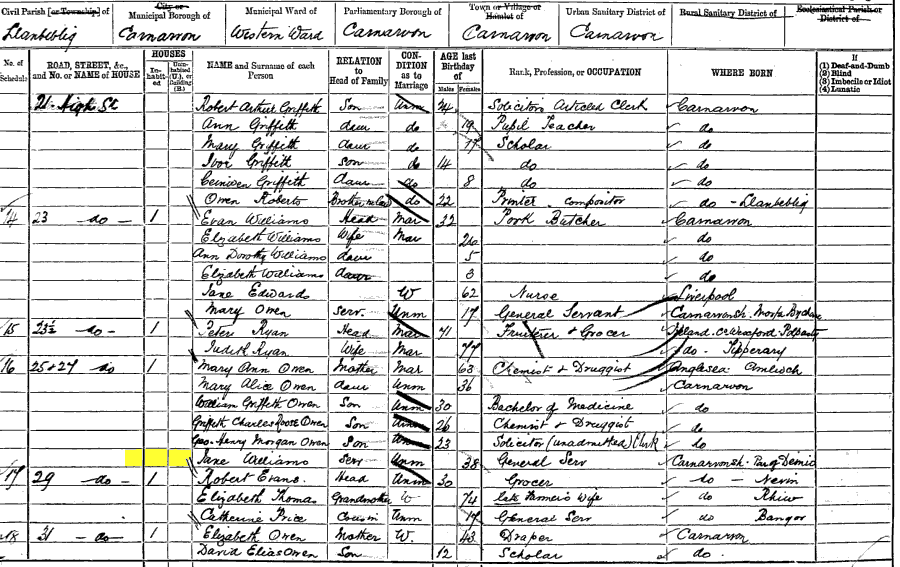 Civil Parish [or Township] of
Llanbeblig
City or Municipal Borough of
Carnarvon
Municipal Ward of
Western Ward
Parliamentary Borough of
Carnarvon
Town or Village or Hamlet of
Carnarvon
Urban Sanitary District of
Carnarvon
Rural Sanitary District of
Ecclesiastical Parish or District of
No. of Schedule
ROAD, STREET, &c., and No. or NAME of HOUSE
HOUSES
In-habit-ed
Unin-habited (U.), or Building (B.)
NAME and Surname of each Person
RELATION to Head of Family
CON-DITION as to Marriage
AGE last Birthday of
Males
Females
Rank, Profession, or OCCUPATION
WHERE BORN
If
(1) Deaf-and-Dumb
(2) Blind
(3) Imbecile or Idiot
(4) Lunatic
21 High St Robert Arthur Griffith Son Unm 24 Solicitors Articled Clerk Carnarvon
Ann Griffith daur do 19 Pupil Teacher do
Mary Griffith daur do 17 Scholar do
Ivor Griffith son do 14 do do
Ceinwen Griffith daur do 8 do do
Owen Roberts Brother in Law do 22 Printer compositor do - Llanbeblig
14 23 do 1 Evan Williams Head Mar 32 Pork Butcher Carnarvon
Elizabeth Williams Wife Mar do
Ann Dorothy Williams daur 5 do
Elizabeth Williams daur 3 do
Jane Edwards W 62 Nurse Liverpool
Mary Owen Serv. Unm 17 General Servant Carnarvonsh.
15 23½ do 1 Peter Ryan Head Mar 71 Fruiterer & Grocer Ireland. Co Wexford
Judith Ryan Wife Mar 77 do - Tipperary
16 25 & 27 do 1 Mary Ann Owen Mother Mar 63 Chemist & Druggist Anglesea Amlwch
Mary Alice Owen daur Unm 36 Carnarvon
William Griffith Owen Son Unm 30 Bachelor of Medicine do
Griffith Charles Owen Son Unm 26 Chemist & Druggist do
Geo. Henry Morgan Owen Son Unm 23 Solicitor (unadmitted) Clerk do
Jane Williams Serv Unm 38 General Serv Carnarvonsh.
17 29 do 1 Robert Evans Head Unm 30 Grocer do - Nevin
Elizabeth Thomas Grandmother W 74 late Farmer's Wife do Rhiw
Catherine Price Cousin Unm 17 General Serv do Bangor
18 31 do 1 Elizabeth Owen Mother W. 43 Draper Carnarvon
David Elias Owen Son 12 Scholar do